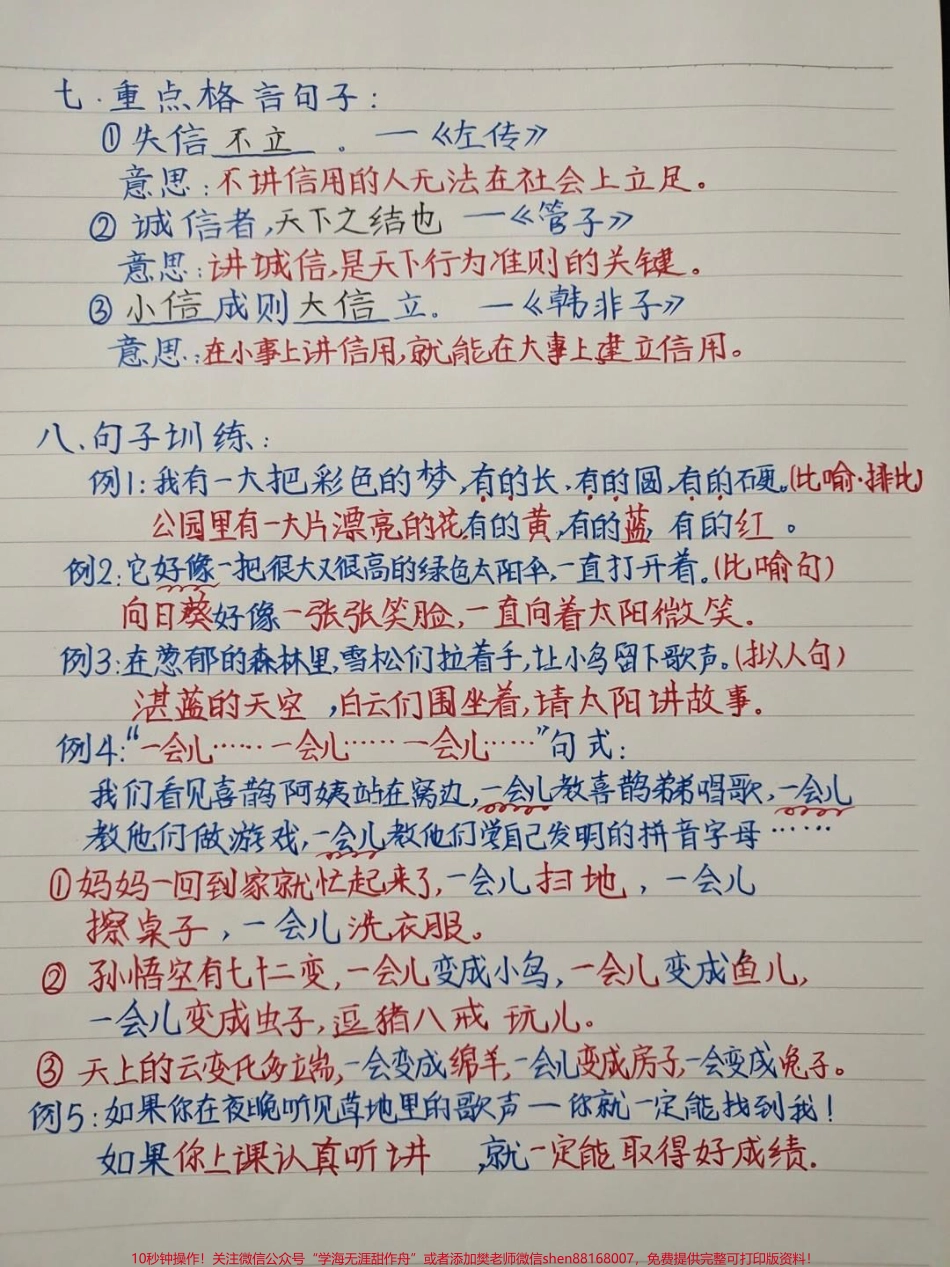 七.重点格言句子:
①失信不立。—《左传》
意思:不讲信用的人无法在社会上立足。
②诚信者,天下之结也 —《管子》
意思:讲诚信,是天下行为准则的关键。
③小信成则大信立。—《韩非子》
意思:在小事上讲信用,就能在大事上建立信用。
八、句子训练:
例1:我有一大把彩色的梦,有的长.有的圆,有的硬。(比喻·排比)
公园里有一大片漂亮的花,有的黄,有的蓝,有的红。
例2:它好像一把很大又很高的绿色太阳伞,一直打开着。(比喻句)
向日葵好像一张张笑脸,一直向着太阳微笑。
例3:在葱郁的森林里,雪松们拉着手,让小鸟留下歌声。(拟人句)
湛蓝的天空,白云们围坐着,请太阳讲故事。
例4:“一会儿……一会儿……一会儿……”句式:
我们看见喜鹊阿姨站在窝边,一会儿教喜鹊弟弟唱歌,一会儿
教他们做游戏,一会儿教他们学自己发明的拼音字母……
①妈妈一回到家就忙起来了,一会儿扫地,一会儿
擦桌子,一会儿洗衣服。
②孙悟空有七十二变,一会儿变成小鸟,一会儿变成鱼儿,
一会儿变成虫子,逗猪八戒玩儿。
③天上的云变化多端,一会变成绵羊,一会儿变成房子,一会变成兔子。
例5:如果你在夜晚听见草地里的歌声—你就一定能找到我!
如果你上课认真听讲,就一定能取得好成绩.
10秒钟操作!关注微信公众号“学海无涯甜作舟”或者添加樊老师微信shen88168007,免费提供完整可打印版资料!